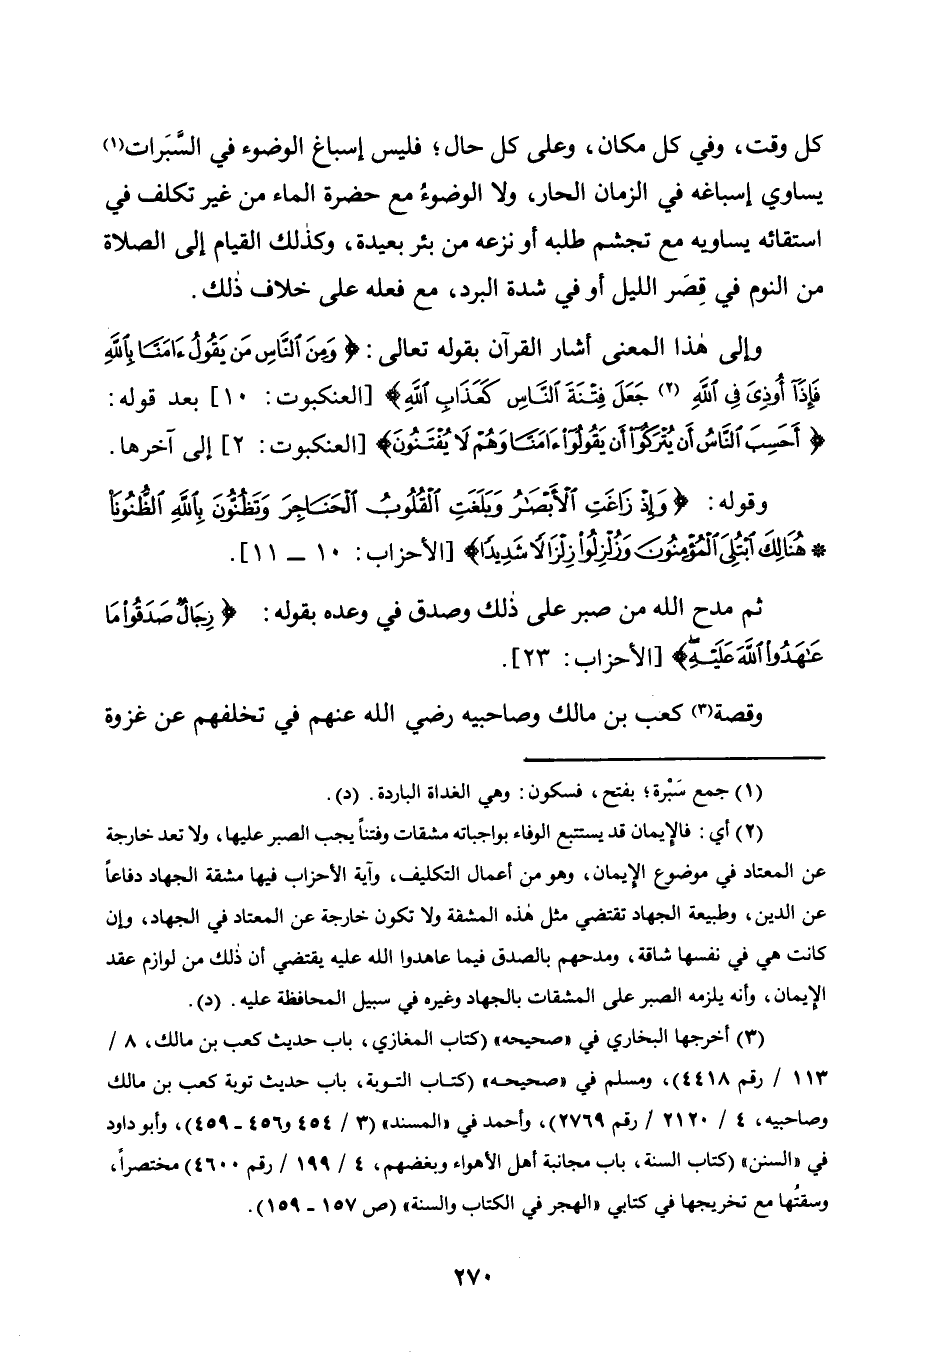 كل وقت، وفي كل مكان، وعلى كل حال؛ فليس إسباغ الوضوء في السَّبَرات(١)
يساوي إسباغه في الزمان الحار، ولا الوضوءُ مع حضرة الماء من غير تكلف في
استقائه يساويه مع تجشم طلبه أو نزعه من بئر بعيدة، وكذٰلك القيام إلى الصلاة
من النوم في قِصَر الليل أو في شدة البرد، مع فعله على خلاف ذٰلك.
وإلى هٰذا المعنى أشار القرآن بقوله تعالى: ﴿وَمِنَ ٱلنَّاسِ مَن يَقُولُ ءَامَنَّا بِٱللَّهِ
فَإِذَآ أُوذِىَ فِى ٱللَّهِ (٢) جَعَلَ فِتْنَةَ ٱلنَّاسِ كَعَذَابِ ٱللَّهِ﴾ [العنكبوت: ١٠] بعد قوله:
﴿أَحَسِبَ ٱلنَّاسُ أَن يُتْرَكُوٓا۟ أَن يَقُولُوٓا۟ ءَامَنَّا وَهُمْ لَا يُفْتَنُونَ﴾ [العنكبوت: ٢] إلى آخرها.
وقوله: ﴿وَإِذْ زَاغَتِ ٱلْأَبْصَـٰرُ وَبَلَغَتِ ٱلْقُلُوبُ ٱلْحَنَاجِرَ وَتَظُنُّونَ بِٱللَّهِ ٱلظُّنُونَا۠
* هُنَالِكَ ٱبْتُلِىَ ٱلْمُؤْمِنُونَ وَزُلْزِلُوا۟ زِلْزَالًا شَدِيدًا﴾ [الأحزاب: ١٠ ــ ١١].
ثم مدح الله من صبر على ذٰلك وصدق في وعده بقوله: ﴿رِجَالٌ صَدَقُوا۟ مَا
عَـٰهَدُوا۟ ٱللَّهَ عَلَيْهِ ۖ﴾ [الأحزاب: ٢٣].
وقصة(٣) كعب بن مالك وصاحبيه رضي الله عنهم في تخلفهم عن غزوة
(١) جمع سَبْرة؛ بفتح، فسكون: وهي الغداة الباردة. (د).
(٢) أي: فالإيمان قد يستتبع الوفاء بواجباته مشقات وفتناً يجب الصبر عليها، ولا تعد خارجة
عن المعتاد في موضوع الإيمان، وهو من أعمال التكليف، وآية الأحزاب فيها مشقة الجهاد دفاعاً
عن الدين، وطبيعة الجهاد تقتضي مثل هٰذه المشقة ولا تكون خارجة عن المعتاد في الجهاد، وإن
كانت هي في نفسها شاقة، ومدحهم بالصدق فيما عاهدوا الله عليه يقتضي أن ذٰلك من لوازم عقد
الإيمان، وأنه يلزمه الصبر على المشقات بالجهاد وغيره في سبيل المحافظة عليه. (د).
(٣) أخرجها البخاري في «صحيحه» (كتاب المغازي، باب حديث كعب بن مالك، ٨ /
١١٣ / رقم ٤٤١٨)، ومسلم في «صحيحه» (كتاب التوبة، باب حديث توبة كعب بن مالك
وصاحبيه، ٤ / ٢١٢٠ / رقم ٢٧٦٩)، وأحمد في «المسند» (٣ / ٤٥٤ و٤٥٦ ـ ٤٥٩)، وأبو داود
في «السنن» (كتاب السنة، باب مجانبة أهل الأهواء وبغضهم، ٤ / ١٩٩ / رقم ٤٦٠٠) مختصراً،
وسقتُها مع تخريجها في كتابي «الهجر في الكتاب والسنة» (ص ١٥٧ ـ ١٥٩).
٢٧٠